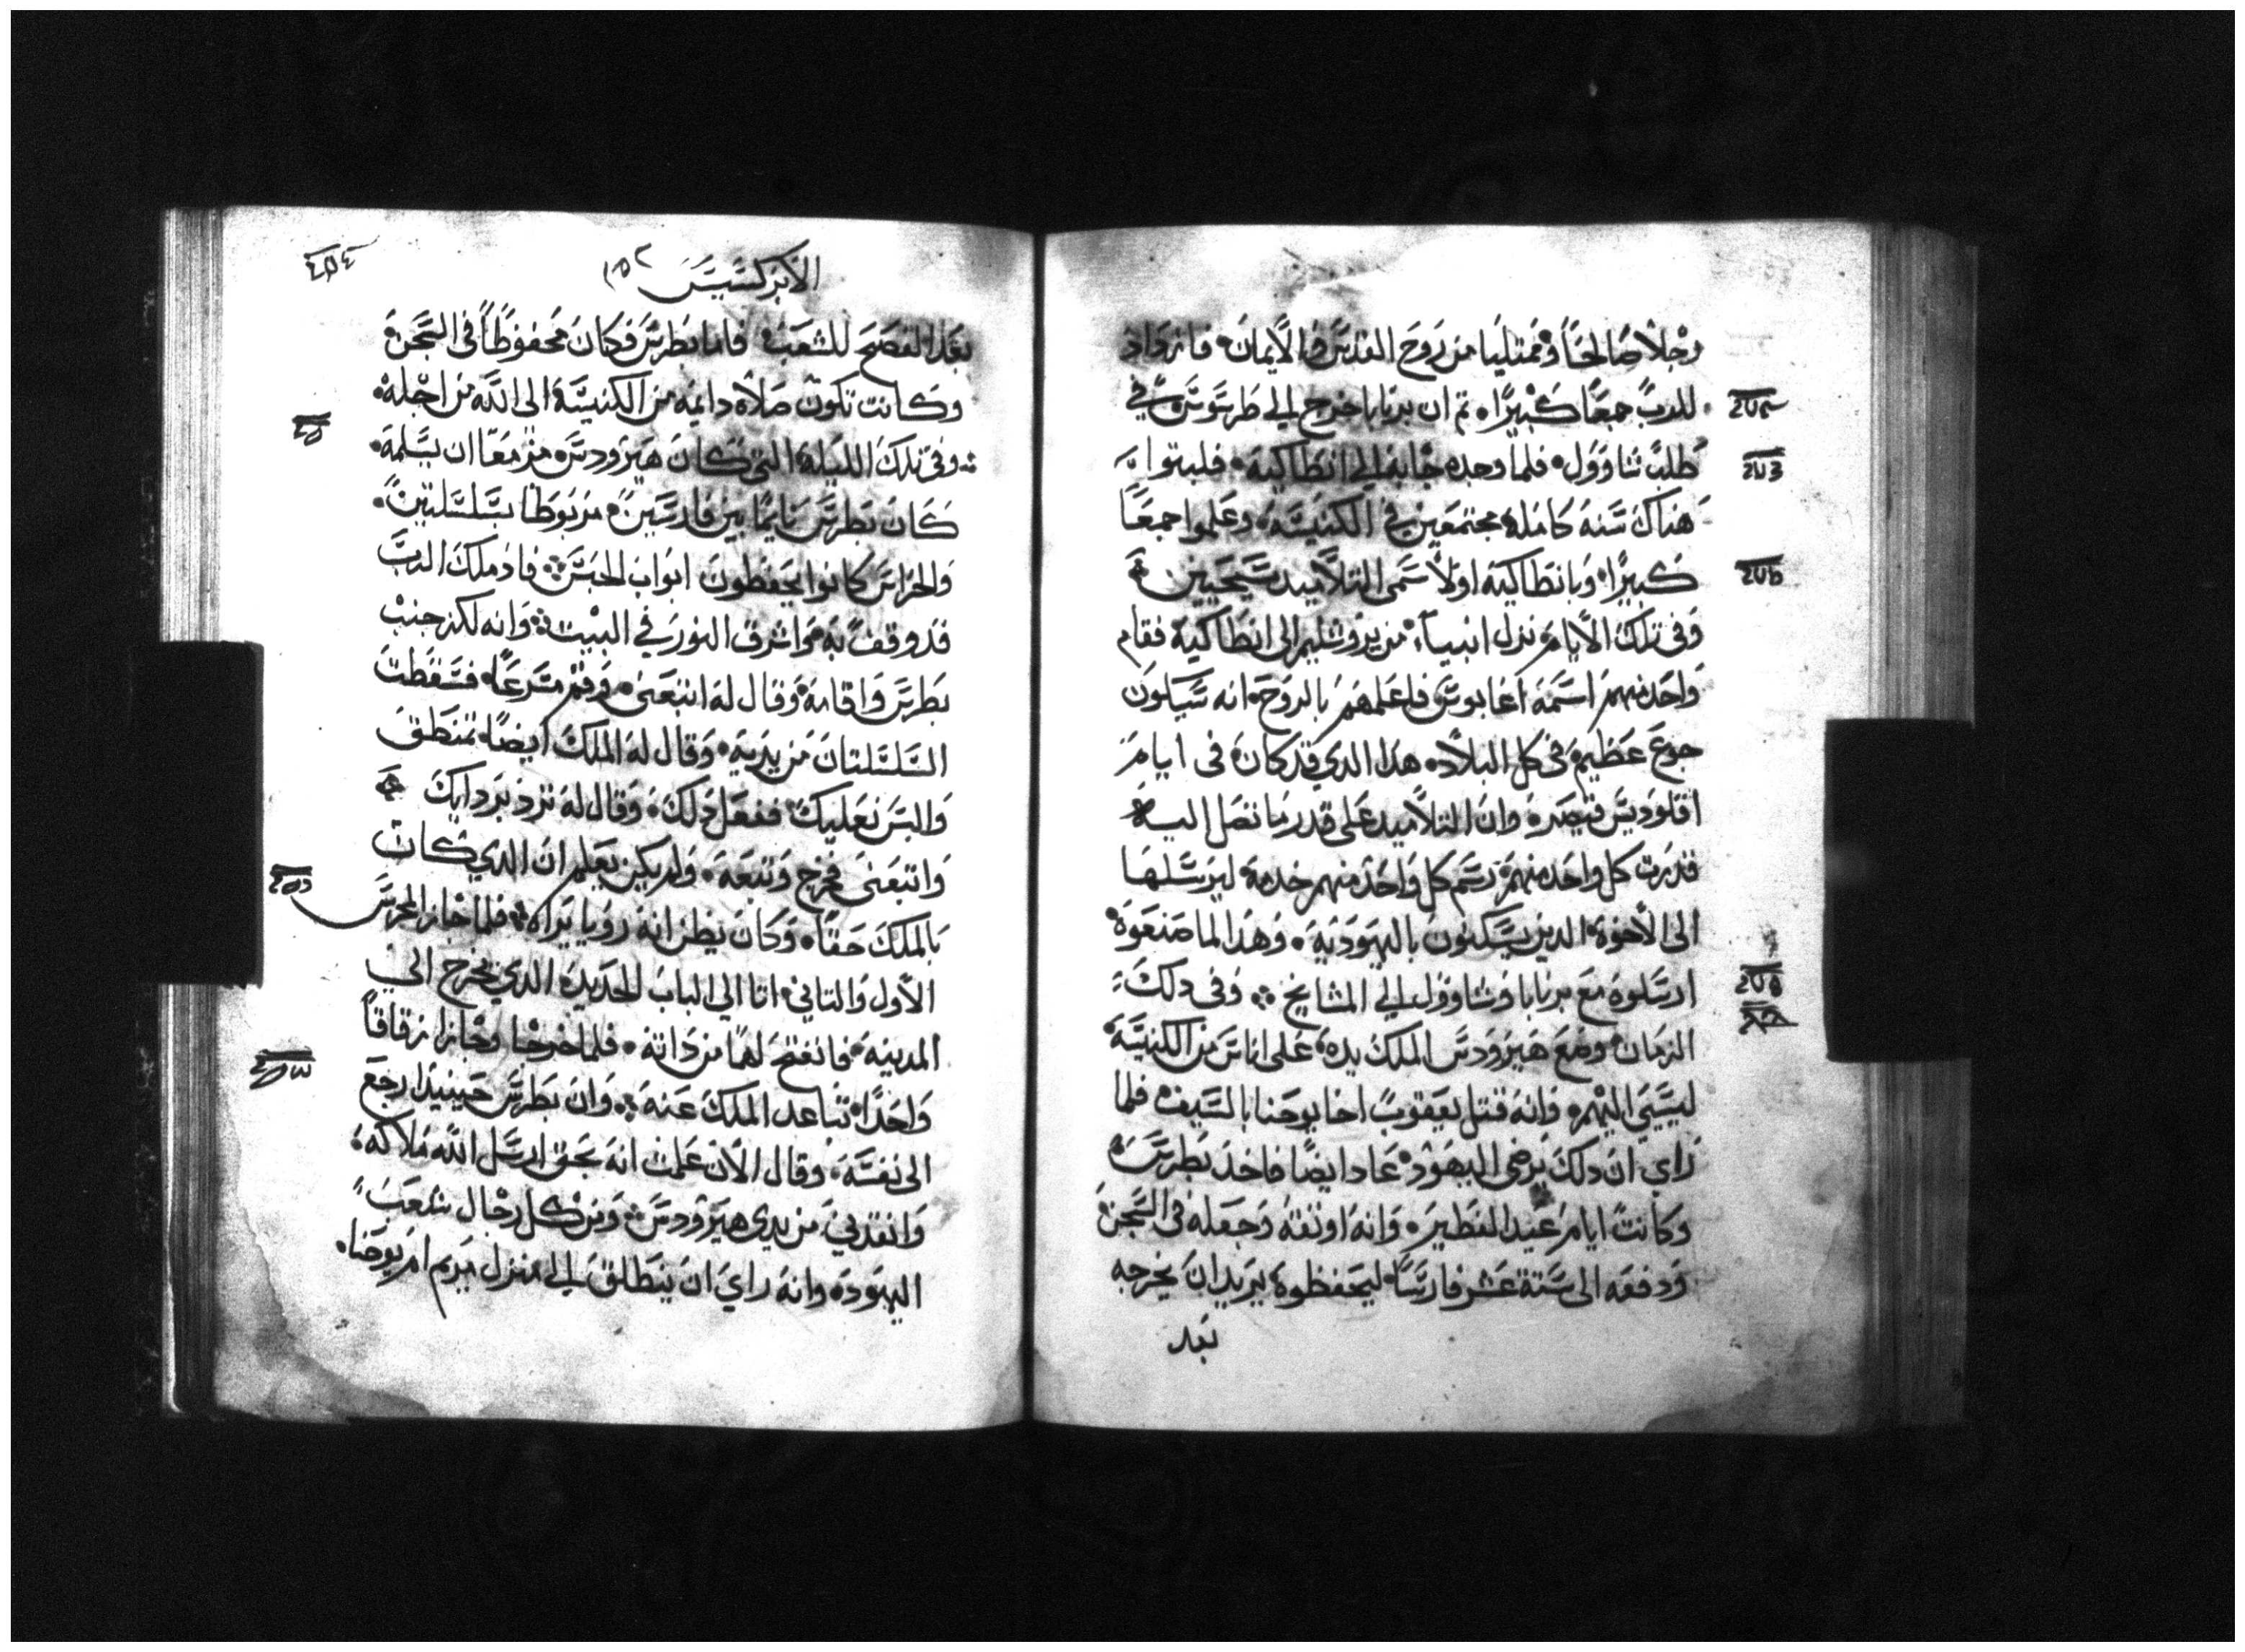 رجلاً صالحاً وممتلياً من روح القدس والايمان فازواد
للرب جمعاً كبيراً ثم ان برنابا خرج الي طرسوس في
طلب شاوول فلما وجده جابه الي انطاكية فلبثوا
هناك سنه كامله مجتمعين في الكنيسه وعلموا جمعاً
كبيراً وبانطاكيه اولاً سمى التلاميد مسيحيين
وفى تلك الايام نزل انبياء من يروشليم الى انطاكية فقام
واحد منهم اسمه اغابوس فاعلمهم بالروح انه سيكون
جوع عظيم فى كل البلاد هدا الدي قد كان فى ايام
اقلوديس قيصر وان التلاميد على قدر ما تصل اليه
قدرت كل واحد منهم رسم كل واحد منهم خدمة ليرسلها
الى الاخوة الدين يسكنون باليهودية وهدا لما صنعوة
ارسلوة مع برنابا وشاوول الي المشايخ وفى دلك
الزمان وضع هيرودس الملك يده على اناس من الكنيسة
ليسيي اليهم وانه قتل يعقوب اخا يوحنا بالسيف فلما
راي ان دلك يرضى اليهود عاد ايضاً فاخد بطرس
وكانت ايام عيد الفطير وانه اوثقه وجعله فى السجن
ودفعه الى ستة عشر فارساً ليحفظوة يريد ان يخرجه
بعد
الابركسيس ١٥٢
بعد الفصح للشعب فاما بطرس فكان محفوظاً فى السجن
وكانت تكون صلاة دايمه من الكنيسة الى الله من اجله
وفى تلك الليلة التى كان هيرودس مزمعاً ان يسلمه
كان بطرس نايماً بين فارسين مربوطاً بسلسلتين
والحراس كانوا يحفظون ابواب الحبس فاد ملك الرب
قد وقف به واشرق النور في البيت وانه لكز جنب
بطرس واقامه وقال له اتبعنى وقم مسرعاً فسقطت
السلسلتان من يديه وقال له الملك ايضاً تمنطق
والبس نعليك ففعل دلك وقال له تزد بردايك
واتبعنى فخرج وتبعه ولم يكن يعلم ان الدي كان
بالملك حقاً وكان يظن انه رويا يراه فلما جاز المحرس
الاول والثاني اتا الي الباب الحديد الدي يخرج الي
المدينه فانفتح لهما من داته فلما خرجا وجازا زقاقاً
واحداً تباعد الملك عنه وان بطرس حينيد رجع
الى نفسه وقال الان علمت انه بحق ارسل الله ملاكه
وانقدني من يدي هيرودس ومن كل رجال شعب
اليهود وانه راي ان ينطلق الي منزل مريم ام يوحنا